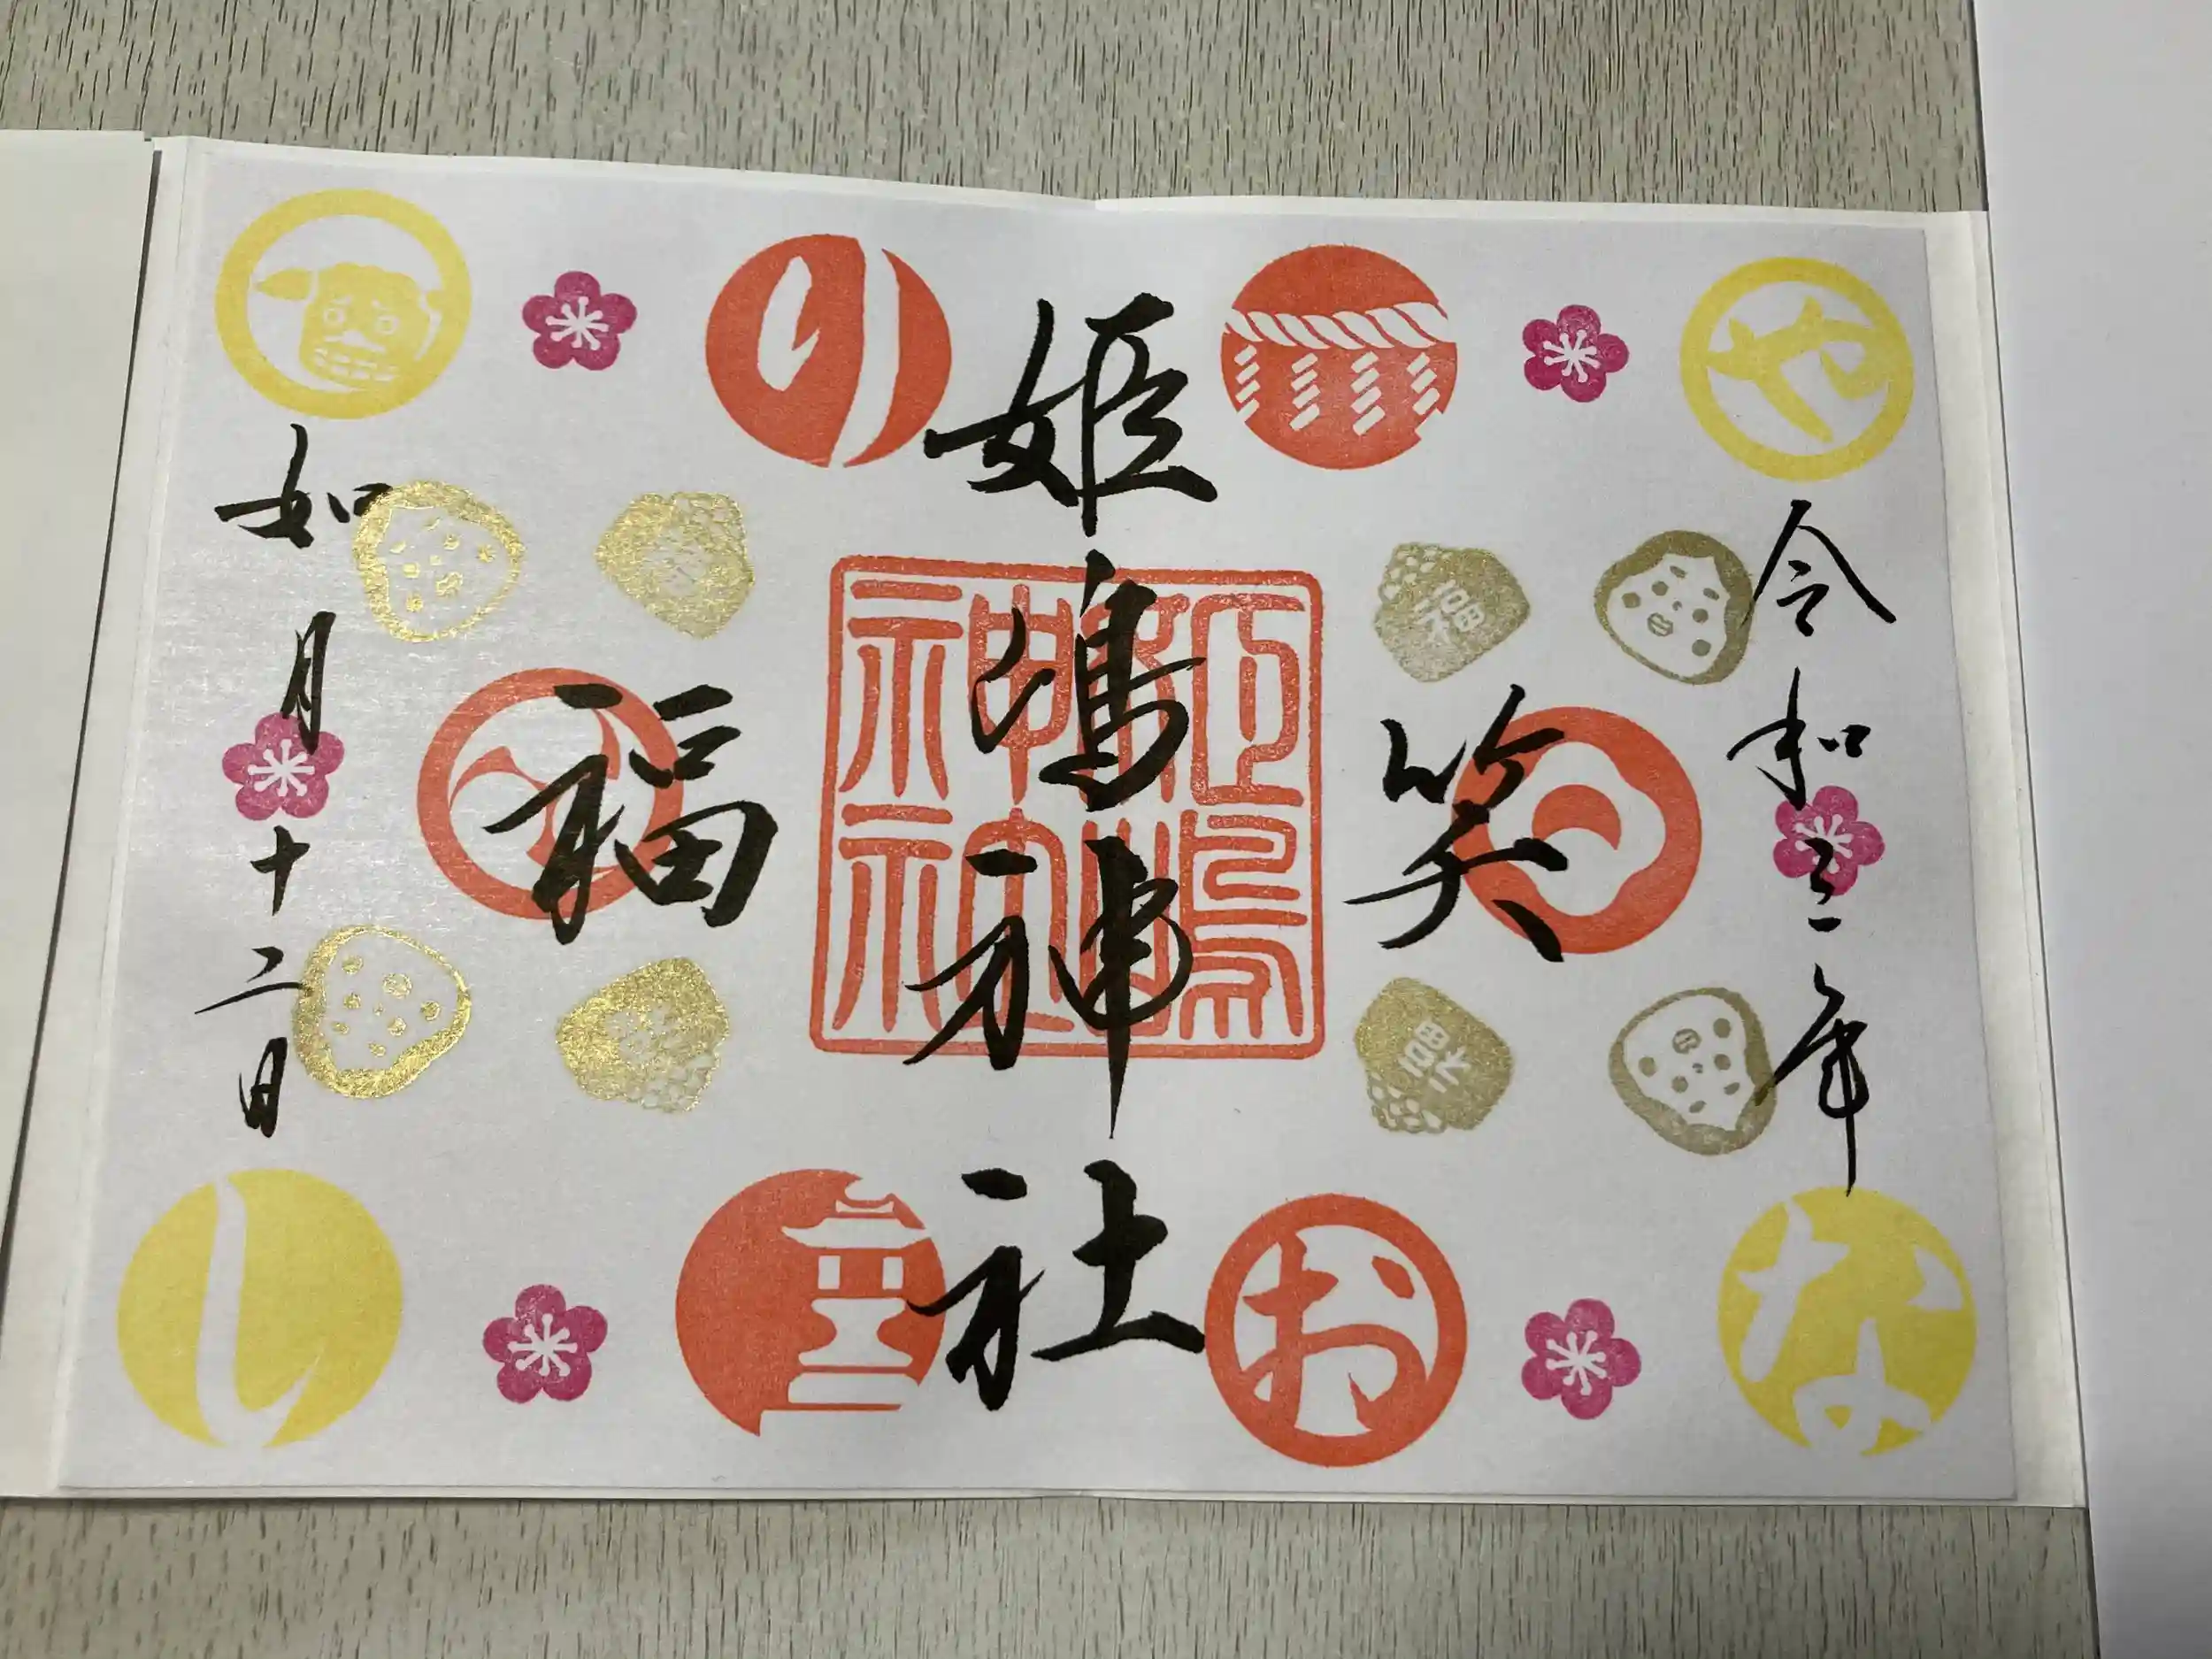 や
令和三年
な
福
福
笑
お
姫嶋神社
姫嶋神社
の
福
如月十二日
し